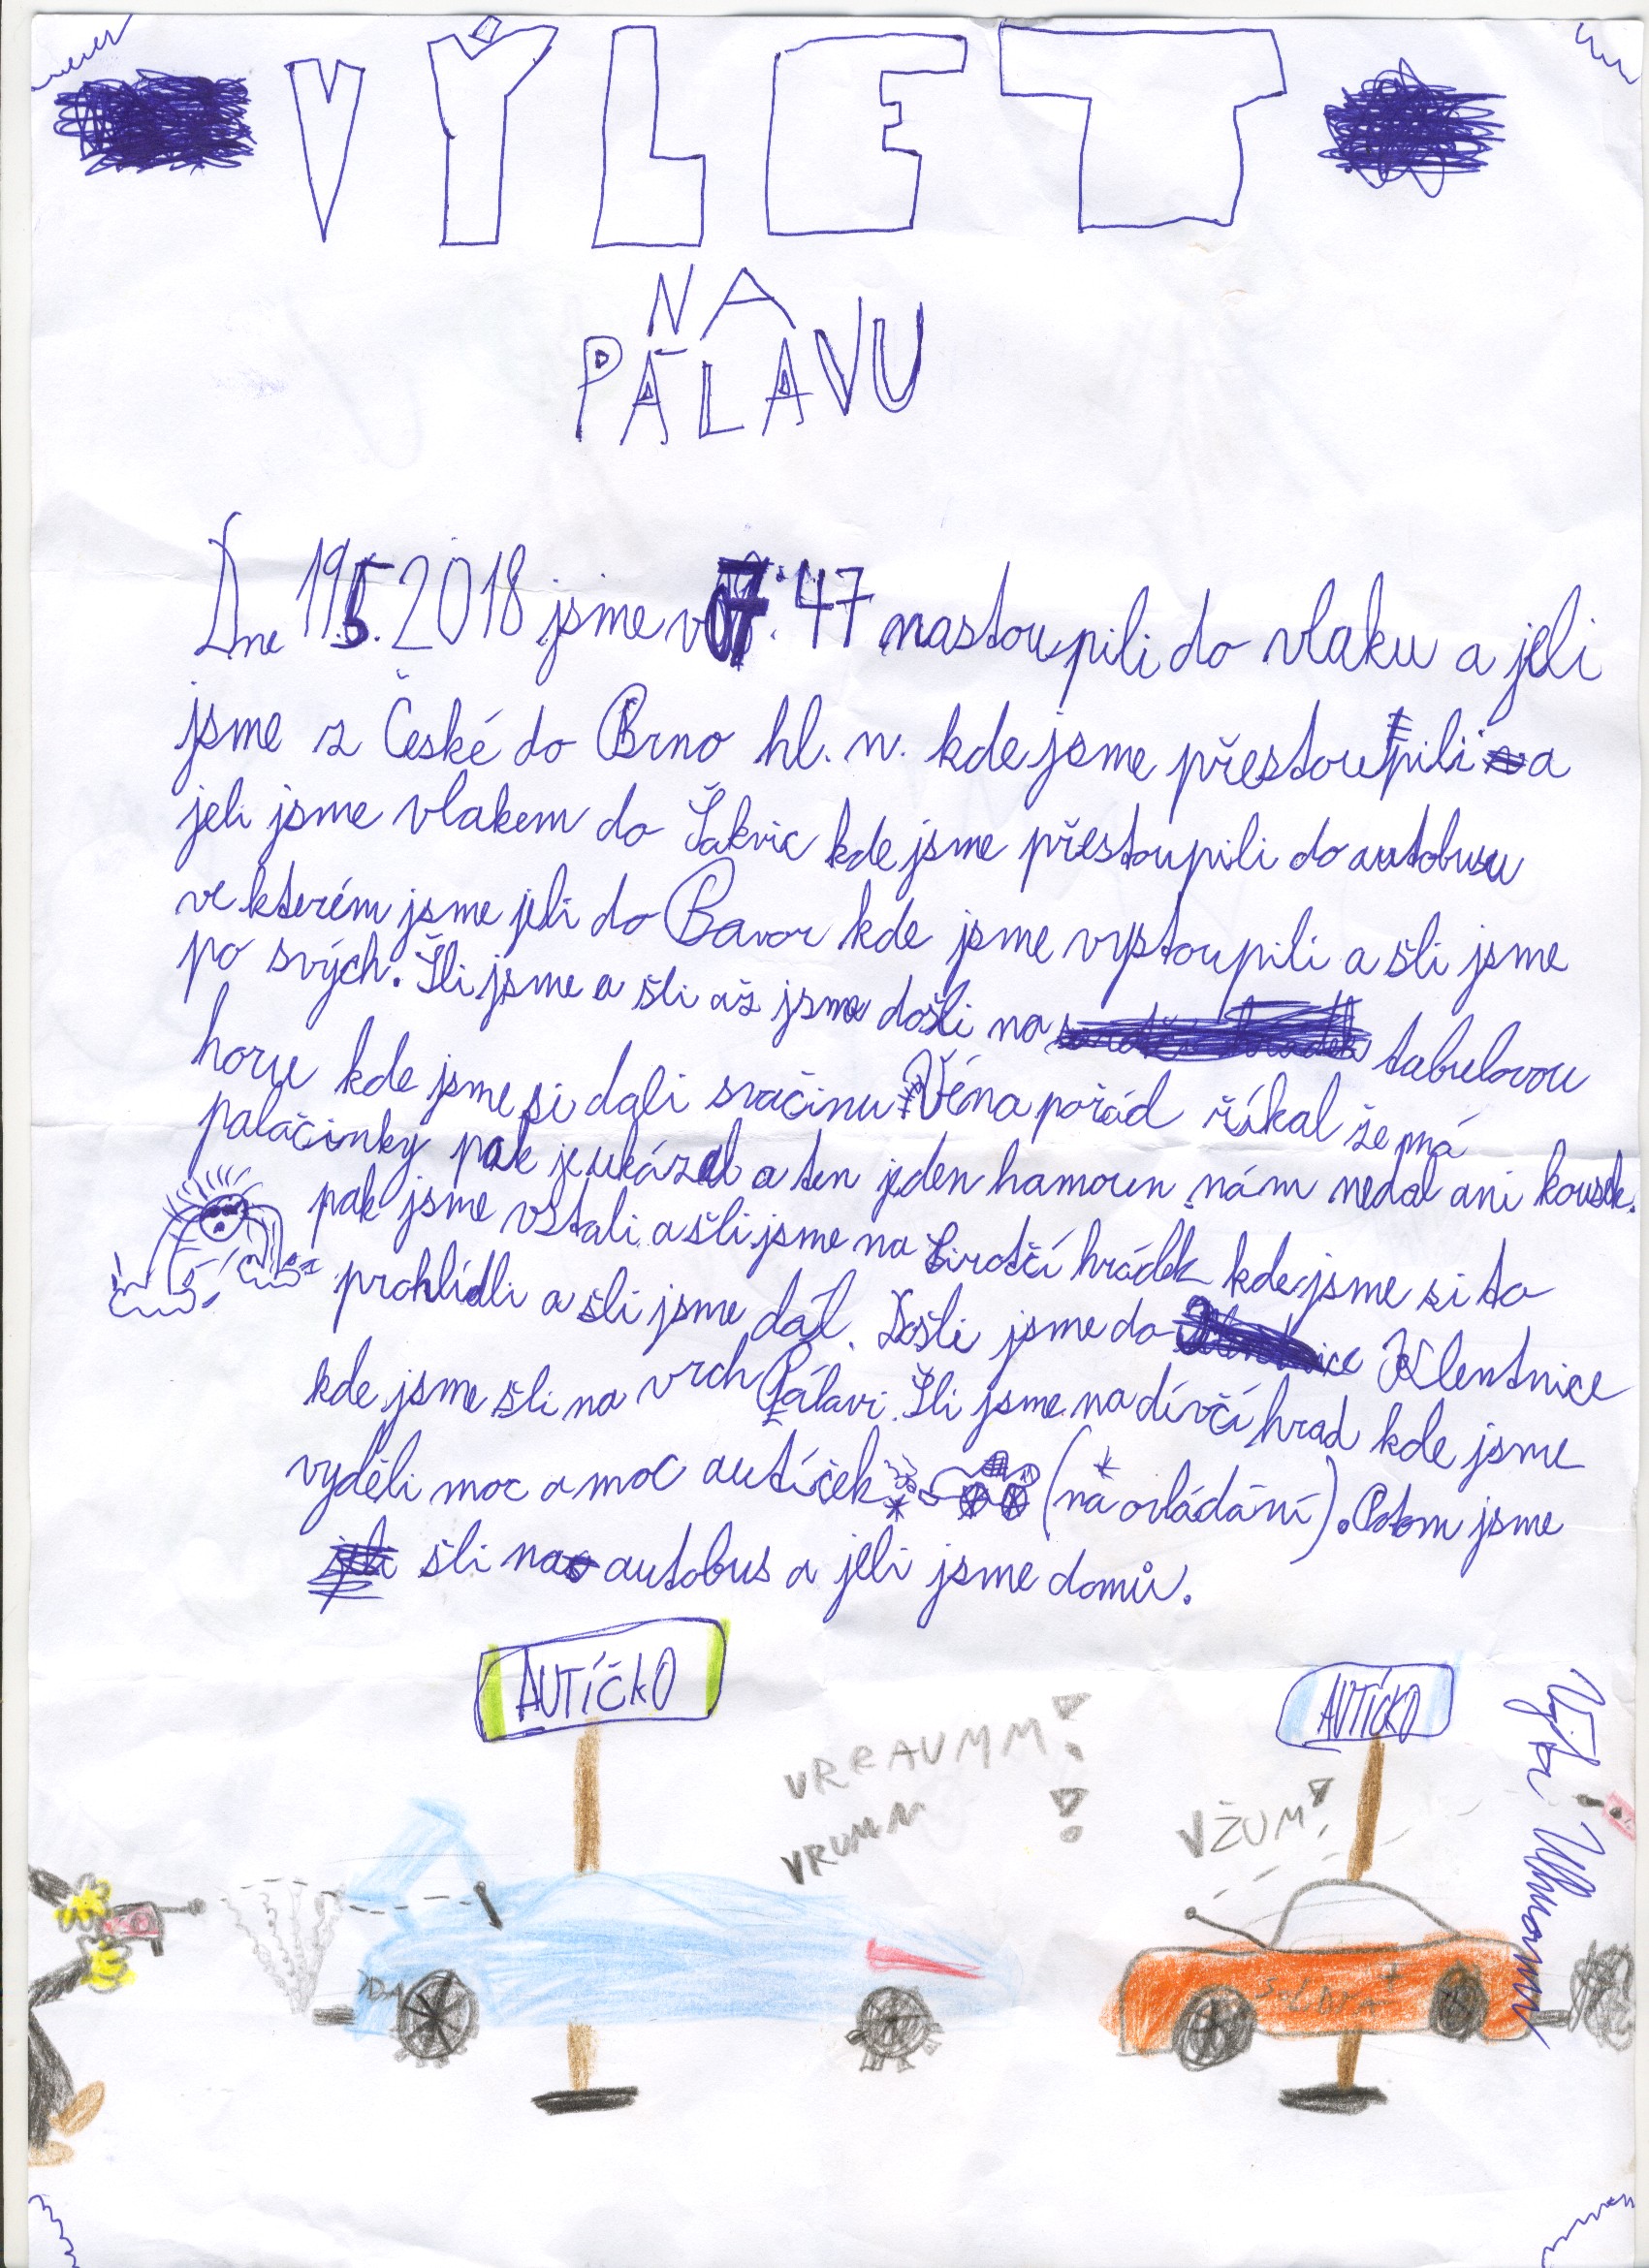 VÝLET
NA
PÁLAVU
Dne 19.5.2018 jsme v 7:47 nastoupili do vlaku a jeli
jsme z České do Brno hl. n. kde jsme přestoupili a
jeli jsme vlakem do Šakvic kde jsme přestoupili do autobusu
ve kterém jsme jeli do Bavor kde jsme vystoupili a šli jsme
po svých. Šli jsme a šli až jsme došli na tabulovou
horu kde jsme si dali svačinu Véna pořád říkal že má
palačinky pak je ukázal a ten jeden hamoun nám nedal ani kousek.
pak jsme vstali a šli jsme na Sirotčí hrádek kde jsme si to
prohlídli a šli jsme dál. Došli jsme do Klentnice
kde jsme šli na vrch Pálavi. Šli jsme na dívčí hrad kde jsme
vyděli moc a moc autíček * (na ovládání). Potom jsme
šli na autobus a jeli jsme domů.
AUTÍČKO
AUTÍČKO
VRRAUMM!
VRUMM!
VŽUM!
Vojta Uhmann